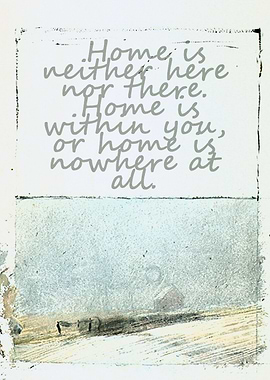 Home is
neither here
nor there.
Home is
within you,
or home is
nowhere at
all.